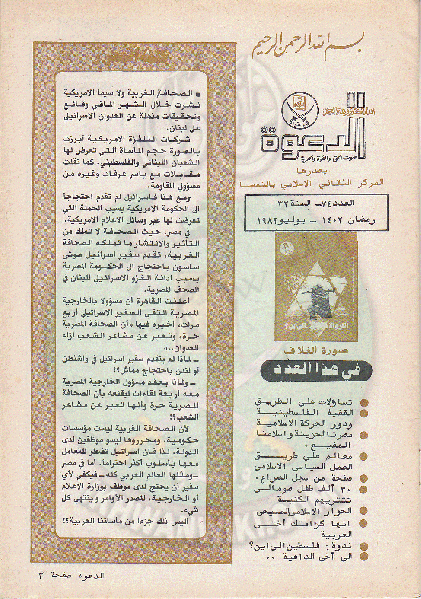 بسم الله الرحمن الرحيم
الدعوة
صوت الحق والقوة والحرية
يصدرها
المركز الثقافي الاسلامي بالنمسا
العدد ٧٤ - السنة ٣٢
رمضان ١٤٠٢ - يوليو ١٩٨٢
صورة الغلاف
في هذا العدد
تساؤلات على الطريق
القضية الفلسطينية
ودور الحركة الاسلامية
معالم على طريق
العمل السياسي الاسلامي
صفحة من سجل الصراع
الحوار الاسلامي المسيحي
العربية
ندوة: فلسطين الى أين؟
الى أخي الداعية ..
الصحافة الغربية ولا سيما الامريكية
نشرت خلال الشهر الماضي وقائع
وتحقيقات مذهلة عن العدوان الاسرائيلي
على لبنان.
شركات تلفزة امريكية أبرزت
بالصورة حجم المأساة التي تعرض لها
الشعبان اللبناني والفلسطيني. كما نقلت
مقابلات مع ياسر عرفات وغيره من
مسؤولي المقاومة.
ومع هذا فاسرائيل لم تقدم احتجاجا
الى الحكومة الامريكية بسبب الحملة التي
تعرضت لها عبر وسائل الاعلام الامريكية.
في مصر، حيث الصحافة لا تملك من
التأثير والانتشار ما تملكه الصحافة
الغربية، تقدم سفير اسرائيل موشى
ساسون باحتجاج الى الحكومة المصرية
بسبب ادانة الغزو الاسرائيلي للبنان في
الصحف المصرية.
أعلنت القاهرة أن مسؤولا بالخارجية
المصرية التقى السفير الاسرائيلي أربع
مرات، أخبره فيها أن الصحافة المصرية
حرة، وتعبر عن مشاعر الشعب ازاء
العدوان ..
- لماذا لم يتقدم سفير اسرائيل في واشنطن
أو لندن باحتجاج مماثل؟!
- ولماذا يعقد مسؤول الخارجية المصرية
معه أربعة لقاءات ليقنعه بأن الصحافة
المصرية حرة وأنها تعبر عن مشاعر
الشعب؟!
لأن الصحافة الغربية ليست مؤسسات
حكومية، ومحرروها ليسوا موظفين لدى
الدولة، لذا فان اسرائيل تضطر للتعامل
معها بأسلوب أكثر احتراما. أما في مصر
- ومثلها العالم العربي كله - فيكفي لأي
سفير أن يحتج لدى موظف بوزارة الاعلام
أو الخارجية، لتصدر الأوامر وينتهي كل
شيء.
أليس ذلك جزءا من مأساتنا العربية؟!
الدعوة صفحة ٢